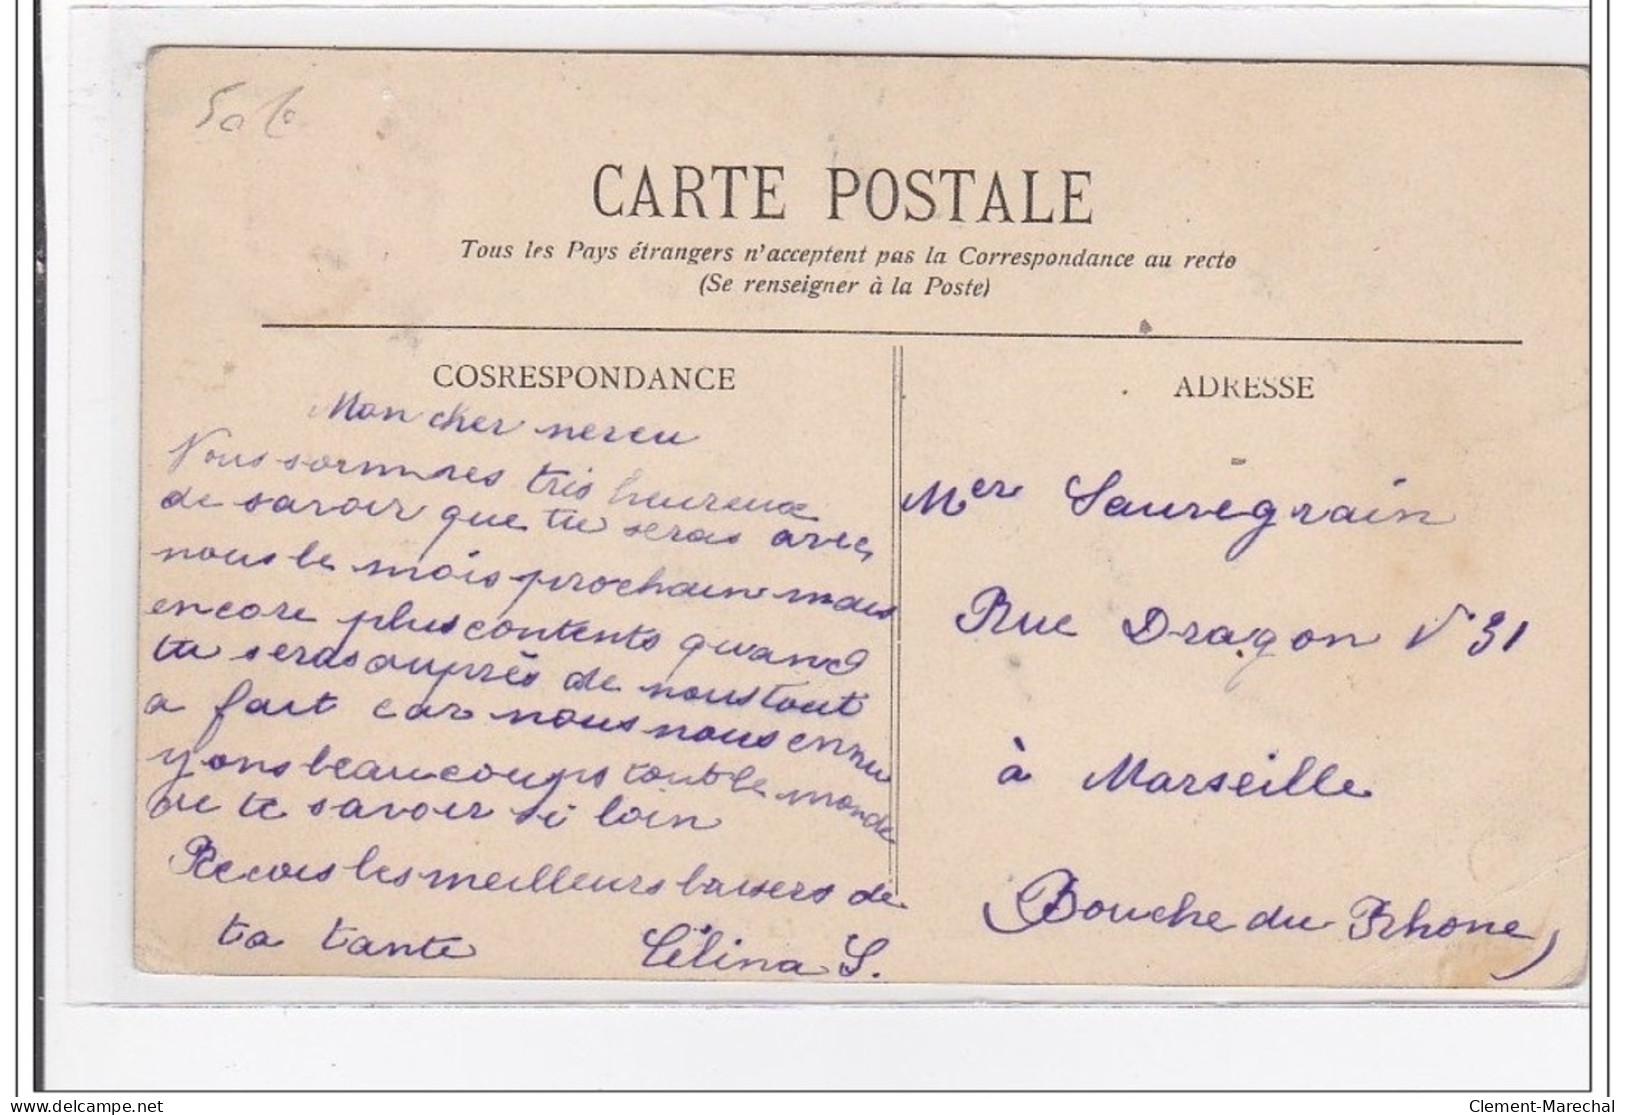 50 f
CARTE POSTALE
Tous les Pays étrangers n'acceptent pas la Correspondance au recto
(Se renseigner à la Poste)
COSRESPONDANCE
Mon cher neveu
Nous sommes tris heureux
de savoir que tu seras avec
nous le mois prochain mais
encore plus contents quand
tu seras auprès de nous tout
a fait car nous nous ennu
yons beaucoups tout le monde
de te savoir si loin
Recois les meilleurs baisers de
ta tante Célina S.
ADRESSE
Mer Sauvégrain
Rue Dragon N° 31
à Marseille
(Bouche du Rhone)
delcampe.net
Clement-Marechal